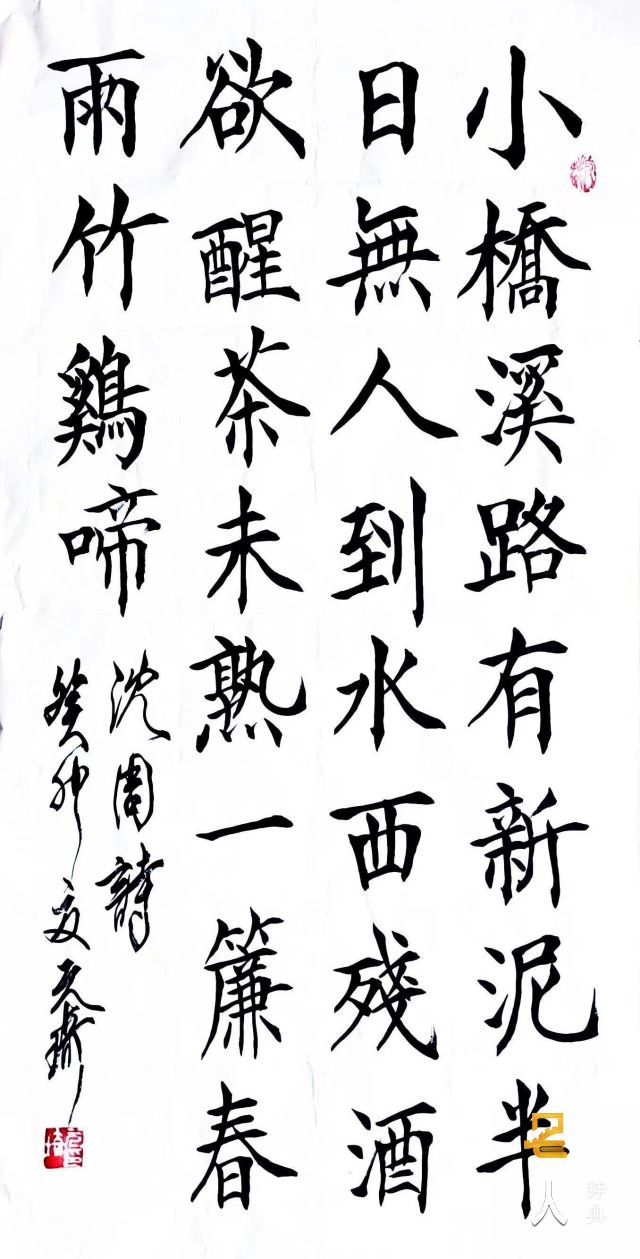 小橋溪路有新泥半
日無人到水西殘酒
欲醒茶未熟一簾春
雨竹鷄啼
沈周詩
癸卯夏
名人
辞典